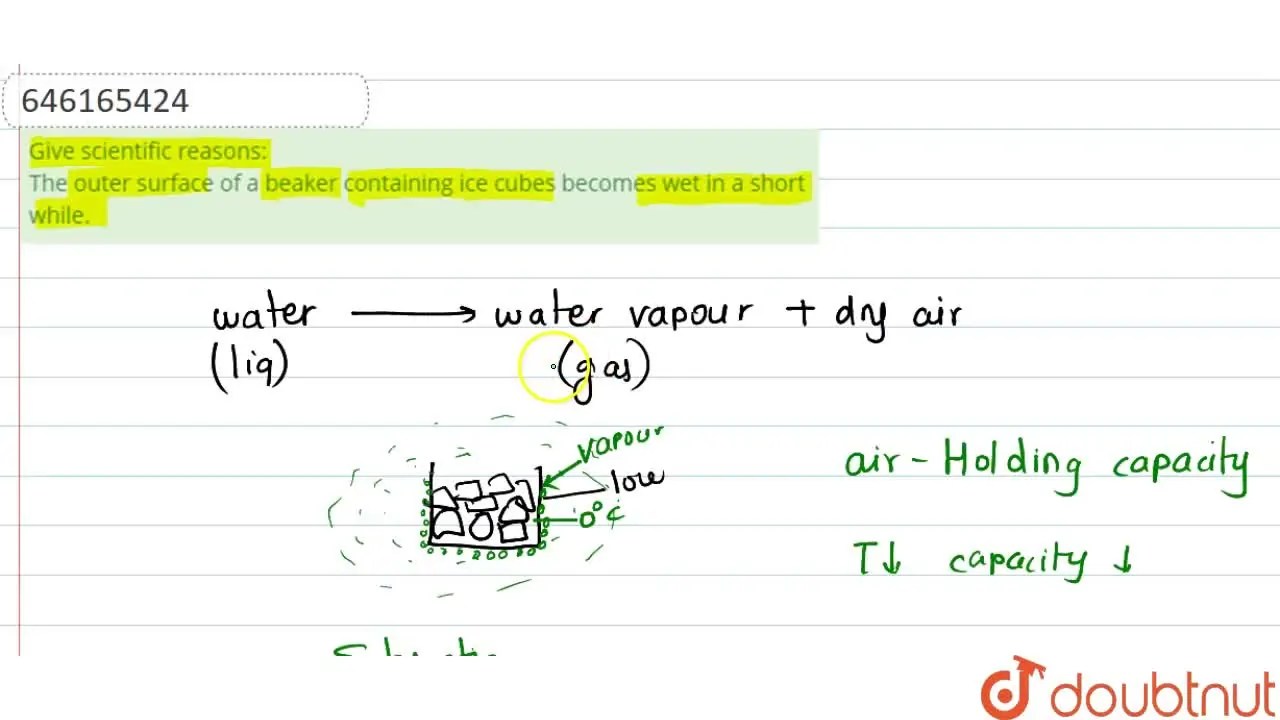 646165424
Give scientific reasons:
The outer surface of a beaker containing ice cubes becomes wet in a short
while.
water ⟶ water vapour + dry air
(liq) (gas)
vapour
low
0°C
air - Holding capacity
T↓ capacity ↓
doubtnut